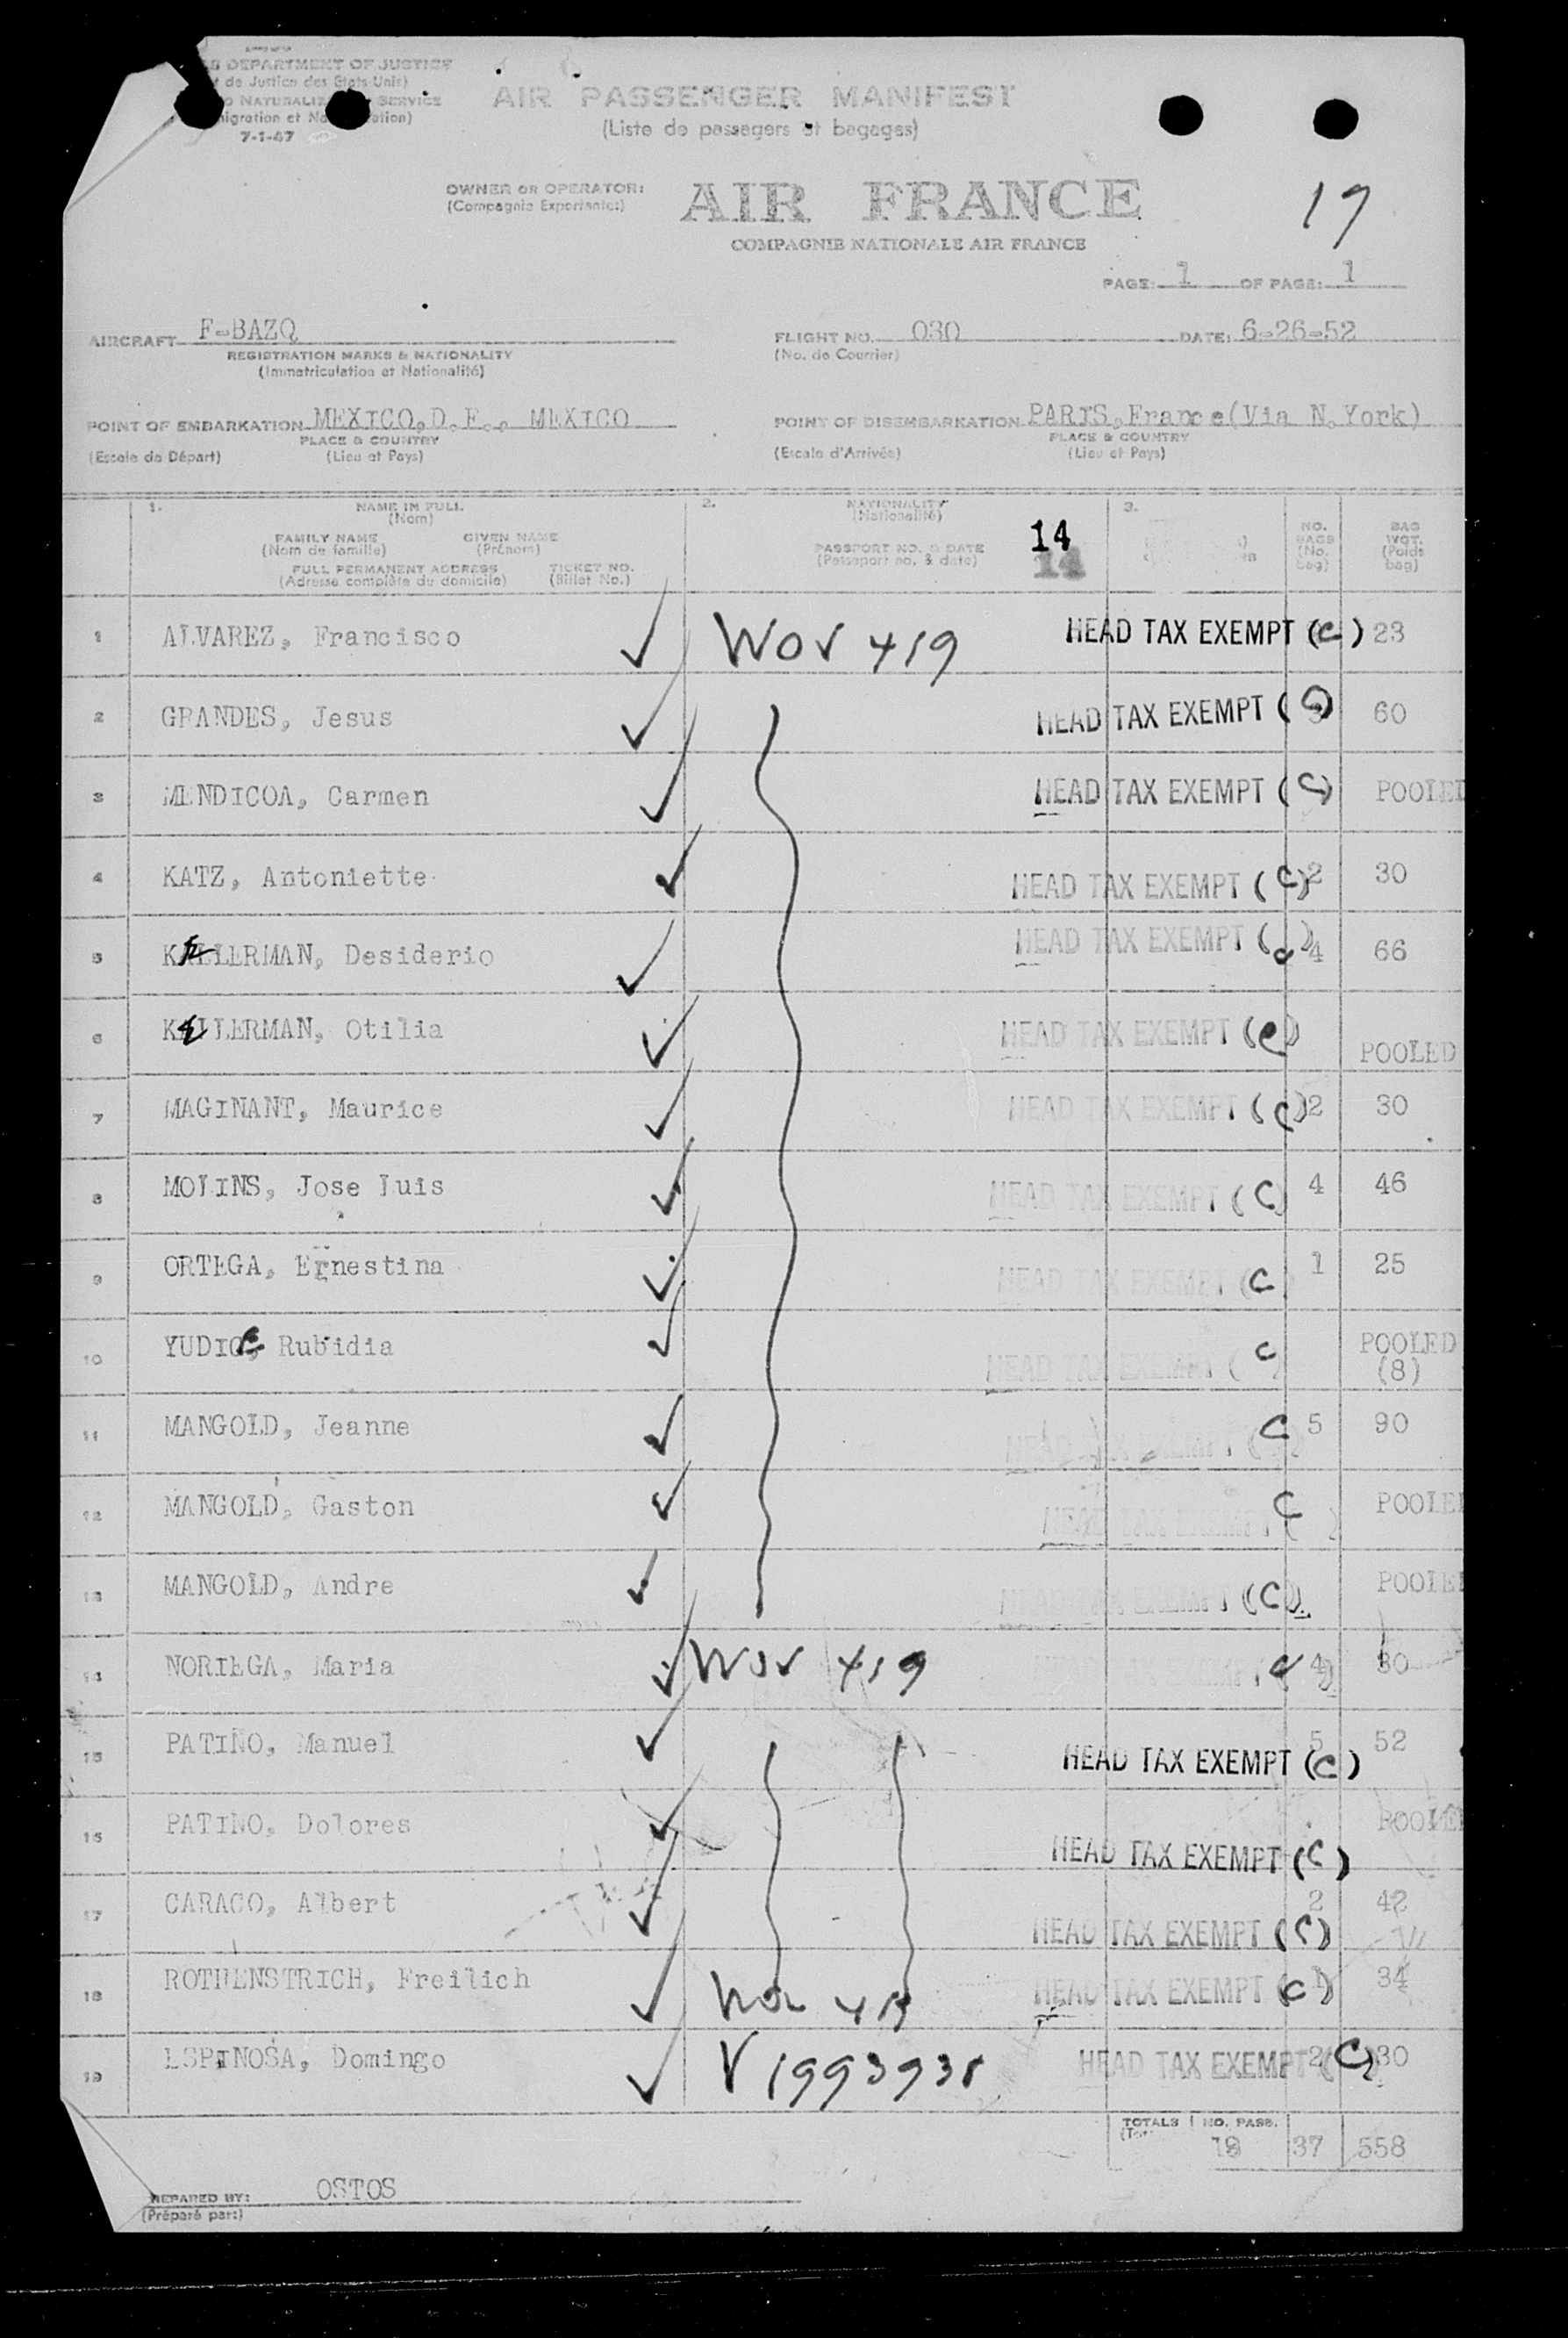 DEPARTMENT OF JUSTICE
de Justice des Etats-Unis)
NATURALIZ SERVICE
7-1-47
AIR PASSENGER MANIFEST
(Liste de passagers et bagages)
OWNER OR OPERATOR:
(Compagnie Exportante:)
AIR FRANCE
COMPAGNIE NATIONALE AIR FRANCE
19
PAGE: 1 OF PAGE: 1
AIRCRAFT F-BAZQ
REGISTRATION MARKS & NATIONALITY
(Immatriculation et Nationalité)
FLIGHT NO. 030 DATE: 6-26-52
(No. de Courrier)
POINT OF EMBARKATION MEXICO,D.F., MEXICO
PLACE & COUNTRY
(Escale de Départ) (Lieu et Pays)
POINT OF DISEMBARKATION PARIS,France(Via N.York)
PLACE & COUNTRY
(Escale d'Arrivée) (Lieu et Pays)
1. NAME IN FULL
(Nom)
FAMILY NAME GIVEN NAME
(Nom de famille) (Prénom)
FULL PERMANENT ADDRESS TICKET NO.
(Adresse complète du domicile) (Billet No.)
2. NATIONALITY
(Nationalité)
PASSPORT NO. & DATE
(Passeport no. & date)
14
14
3.
NO. BAGS (No. bag)
BAG WGT. (Poids bag)
1 ALVAREZ, Francisco WOV 419 HEAD TAX EXEMPT (C) 23
2 GRANDES, Jesus HEAD TAX EXEMPT (C) 60
3 MENDICOA, Carmen HEAD TAX EXEMPT (C) POOLED
4 KATZ, Antoniette HEAD TAX EXEMPT (C) 2 30
5 KELLERMAN, Desiderio HEAD TAX EXEMPT (C) 4 66
6 KELLERMAN, Otilia HEAD TAX EXEMPT (C) POOLED
7 MAGINANT, Maurice HEAD TAX EXEMPT (C) 2 30
8 MOLINS, Jose Luis HEAD TAX EXEMPT (C) 4 46
9 ORTEGA, Ernestina HEAD TAX EXEMPT (C 1 25
10 YUDICE, Rubidia HEAD TAX EXEMPT (C POOLED (8)
11 MANGOLD, Jeanne HEAD TAX EXEMPT C 5 90
12 MANGOLD, Gaston HEAD TAX EXEMPT C POOLED
13 MANGOLD, Andre HEAD TAX EXEMPT (C) POOLED
14 NORIEGA, Maria WOV 419 C 4 30
15 PATIÑO, Manuel HEAD TAX EXEMPT (C) 5 52
16 PATINO, Dolores HEAD TAX EXEMPT (C) POOLED
17 CARACO, Albert HEAD TAX EXEMPT (C) 2 42
18 ROTHENSTRICH, Freilich WOV 419 HEAD TAX EXEMPT (C) 1 34
19 ESPINOSA, Domingo V1993938 HEAD TAX EXEMPT (C) 2 30
TOTALS NO. PASS.
37 558
PREPARED BY: OSTOS
(Préparé par:)